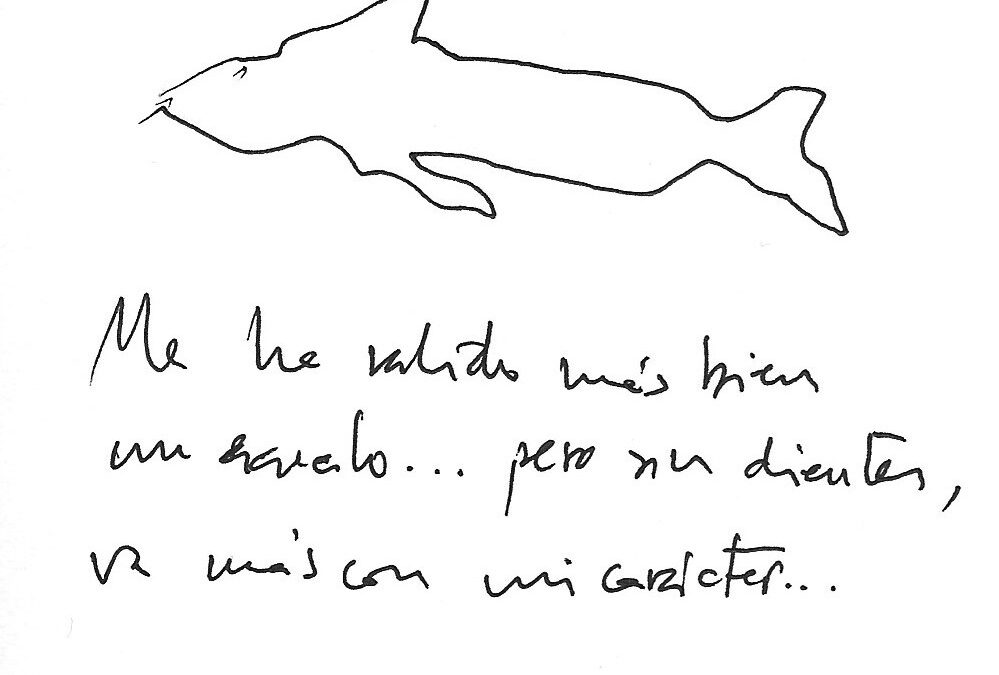 Me ha valido más bien
un escualo... pero sin dientes,
va más con mi carácter...